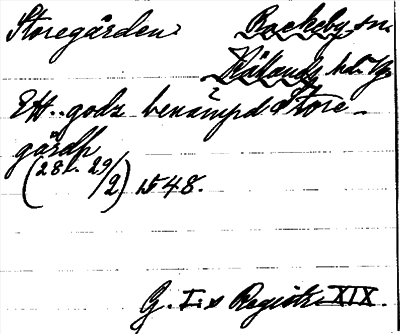 Storegården Backeby sn.
Kållands hd. Vg.
Ett godz benämpd Store-
gårdh
(28. 29/2) 1548.
G. I:s Registr. XIX.